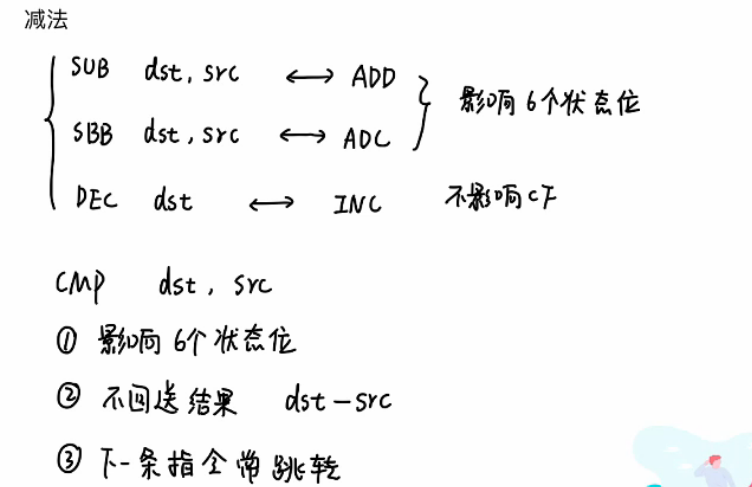 减法
SUB dst, src ⟷ ADD
SBB dst, src ⟷ ADC
影响6个状态位
DEC dst ⟷ INC 不影响CF
CMP dst, src
① 影响6个状态位
② 不回送结果 dst-src
③ 下一条指令常跳转